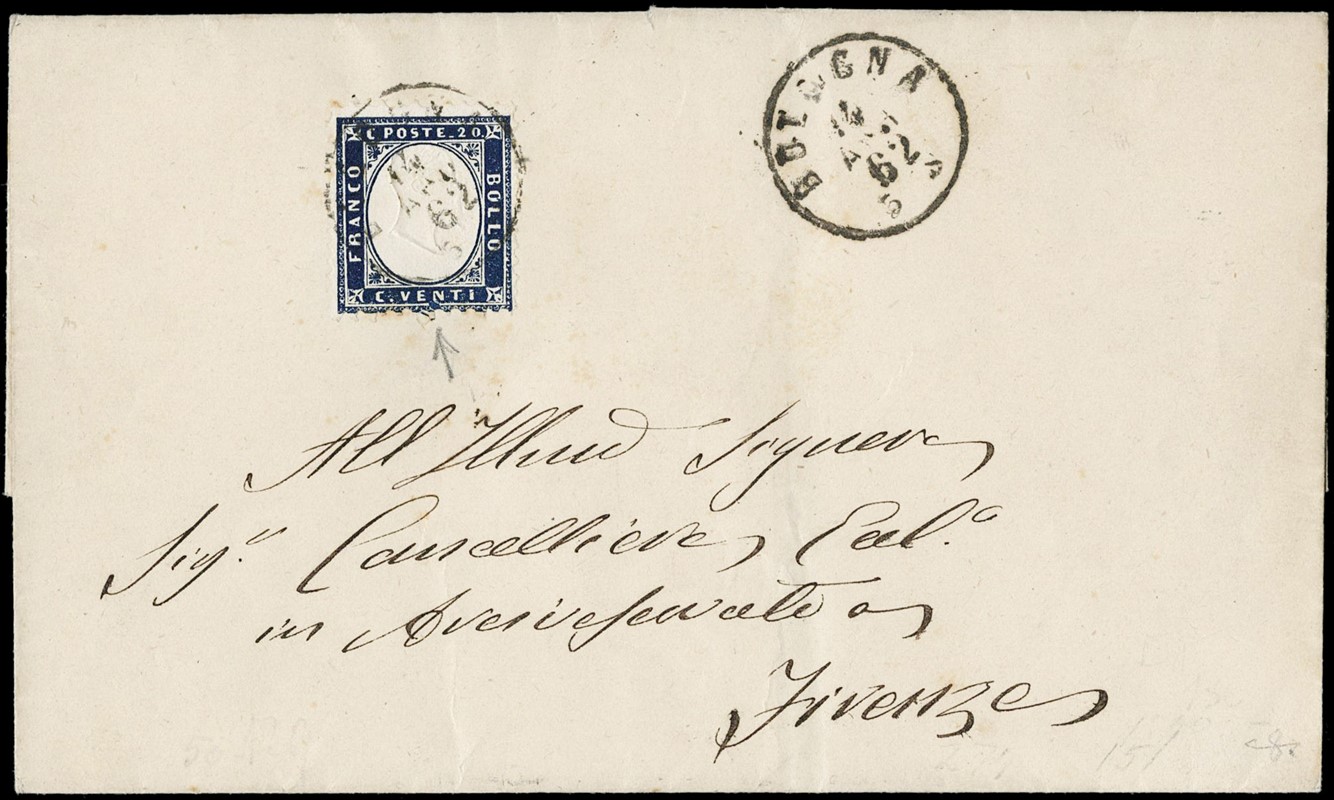 C POSTE. 20.
FRANCO
BOLLO
C. VENTI
BOLOGNA
14
62
All Signore
Sig.r Cancelliere
in Arcivescovato
Firenze